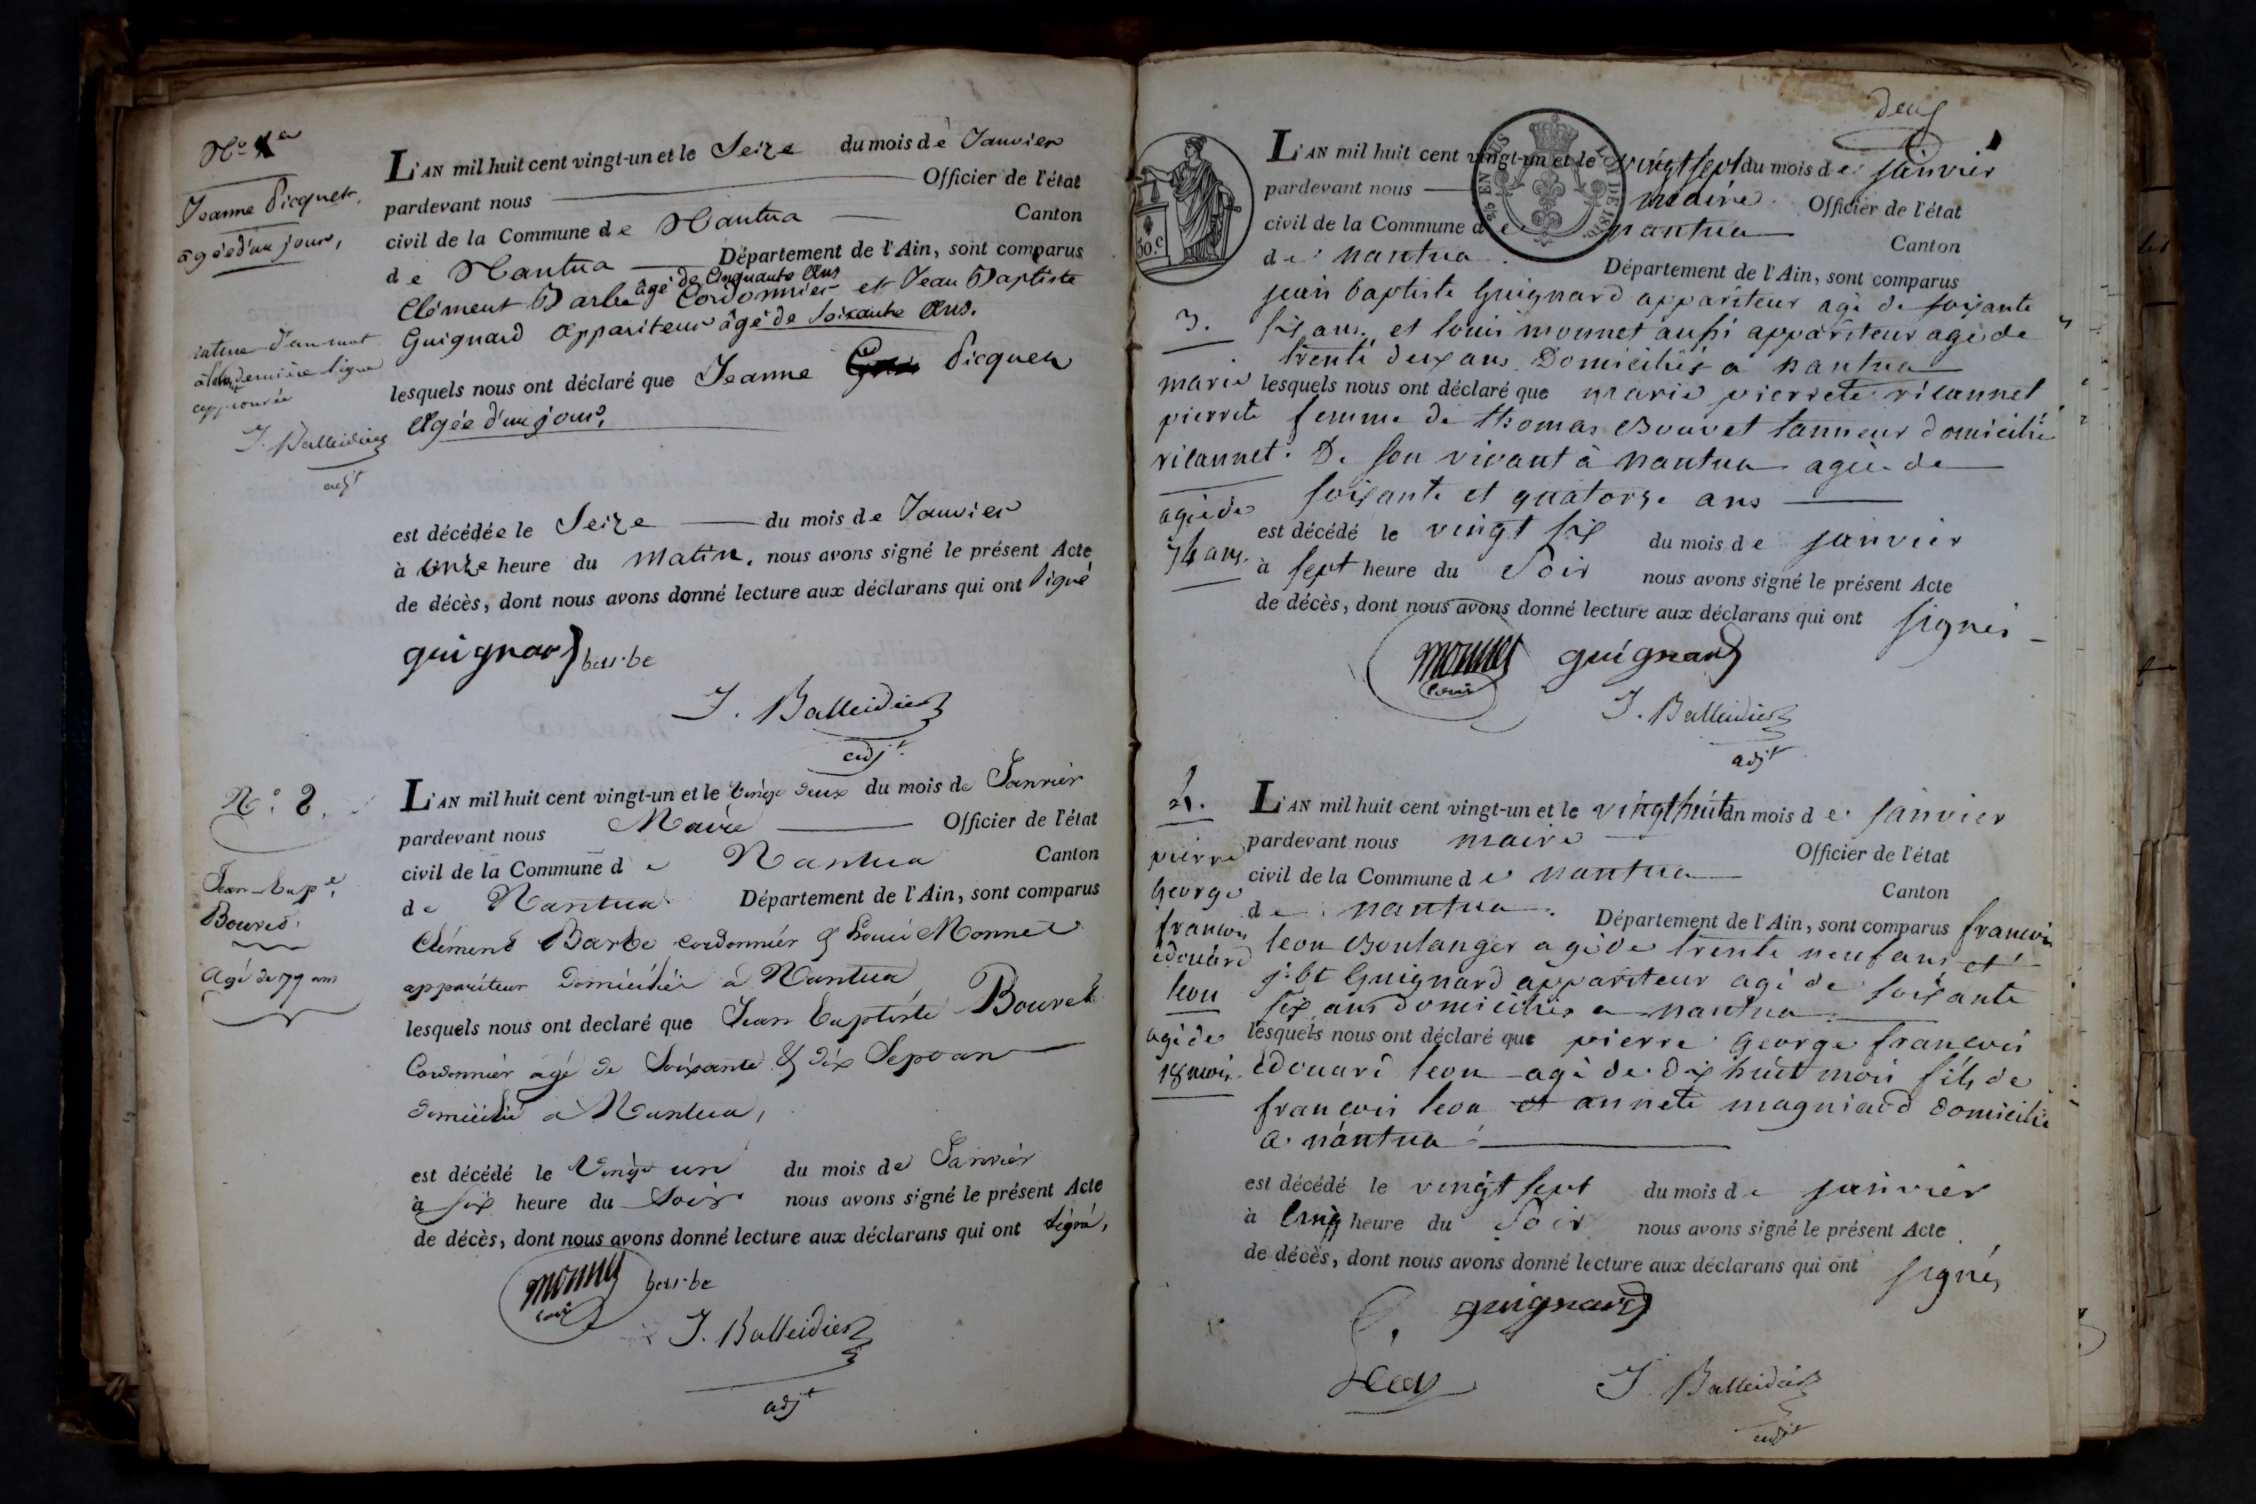 N.º 1er
Jeanne Picquet,
âgée d'un jour,
rature d'un mot
à la dernière ligne
approuvée
J. Balleidier
adjt
L'AN mil huit cent vingt-un et le Seize du mois de Janvier
pardevant nous Officier de l'état
civil de la Commune de Nantua Canton
de Nantua Département de l'Ain, sont comparus
âgé de Cinquante Ans
Clément Barbe Cordonnier et Jean Baptiste
Guignard Appariteur âgé de Soixante Ans.
lesquels nous ont déclaré que Jeanne Picquet
Agée d'un jour,
est décédée le Seize du mois de Janvier
à onze heure du matin, nous avons signé le présent Acte
de décès, dont nous avons donné lecture aux déclarans qui ont signé
guignard barbe
J. Balleidier
adjt
N.º 2.
Jean Bapte
Bouvet
Agé de 77 ans
L'AN mil huit cent vingt-un et le vingt deux du mois de Janvier
pardevant nous Maire Officier de l'état
civil de la Commune de Nantua Canton
de Nantua Département de l'Ain, sont comparus
Clément Barbe cordonnier & Louis Monnet
appariteur domiciliés à Nantua
lesquels nous ont declaré que Jean Baptiste Bouvet
Cordonnier agé de Soixante & dix Sept an
domicilié à Nantua,
est décédé le Vingt un du mois de Janvier
à six heure du Soir nous avons signé le présent Acte
de décès, dont nous avons donné lecture aux déclarans qui ont signé,
monnet barbe
louis
J. Balleidier
adjt
deux
30.c
EN SUS
LOI DE 1816
3.
marie
pierrete
vilannet.
agée de
74 ans.
L'AN mil huit cent vingt-un et le vingt sept du mois de janvier
pardevant nous maire Officier de l'état
civil de la Commune de nantua Canton
de nantua Département de l'Ain, sont comparus
jean baptiste Guignard appariteur agé de soixante
six ans. et louis monnet aussi appariteur agé de
trente deux ans Domiciliés a nantua
lesquels nous ont déclaré que marie pierrete vilannet
femme de thomas Bouvet tanneur domicilié
De son vivant à nantua agée de
soixante et quatorze ans
est décédé le vingt six du mois de janvier
à sept heure du Soir nous avons signé le présent Acte
de décès, dont nous avons donné lecture aux déclarans qui ont signés
monnet guignard
louis
J. Balleidier
adjt
4.
pierre
George
francois
edouard
leon
agé de
18 mois.
L'AN mil huit cent vingt-un et le vingt huit du mois de janvier
pardevant nous maire Officier de l'état
civil de la Commune de nantua Canton
de nantua Département de l'Ain, sont comparus francois
leon Boulanger agé de trente neuf ans et
j. bt Guignard appariteur agé de soixante
six ans domiciliés a nantua
lesquels nous ont déclaré que pierre George francois
edouard leon agé de dix huit mois fils de
francois leon et annete magniard domicilié
a nantua
est décédé le vingt sept du mois de janvier
à cinq heure du Soir nous avons signé le présent Acte
de décès, dont nous avons donné lecture aux déclarans qui ont signés
guignard
Leon
J. Balleidier
adjt